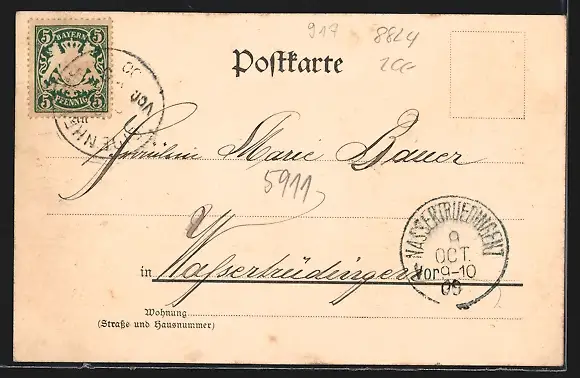 917
8824
BAYERN
5 5
5 5
PFENNIG
Postkarte
Vor
Fräulein Marie Bauer
5911
WASSERTRUEDINGEN
9
OCT.
Vor 9-10
in Wassertrüdingen
Wohnung
(Straße und Hausnummer)